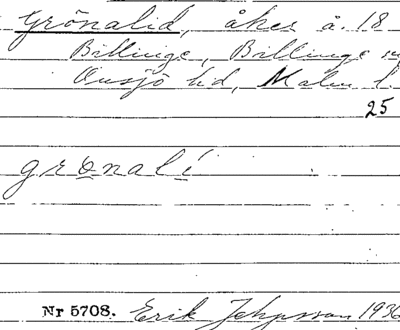 Grönalid, åker å. 18
Billinge, Billinge
Onsjö hd, Malm. l.
25
grǫnalí
Nr 5708. Erik Jeppsson 1936